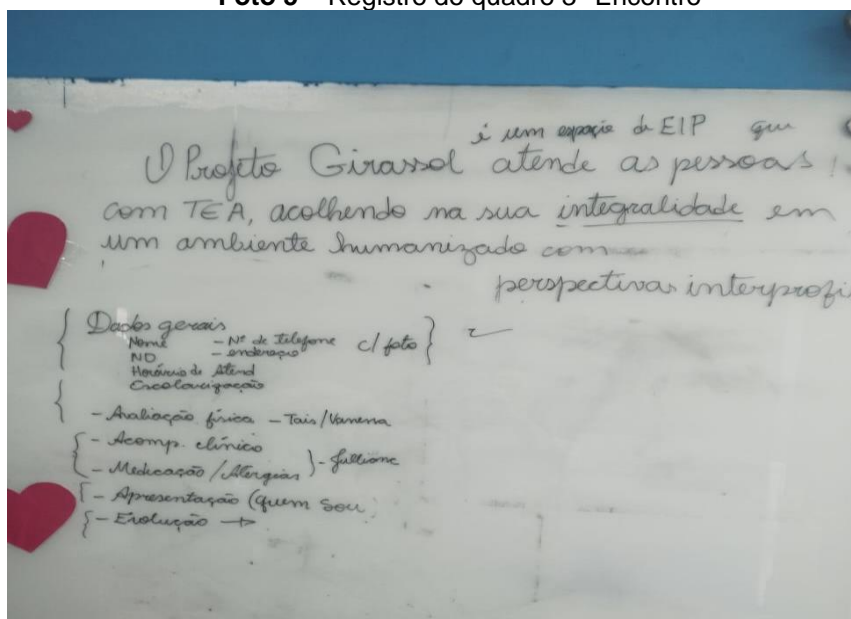 Registro do quadro Encontro
é um espaço de EIP que
O Projeto Girassol atende as pessoas
com TEA, acolhendo na sua integralidade em
um ambiente humanizado com
perspectivas interprofi
Dados gerais
Nome - Nº de Telefone c/ foto
ND - endereço
Horário de Atend
Escolarização
- Avaliação física - Tais/Vanessa
- Acomp. clínico
- Medicação/Alergias - Jullione
- Apresentação (quem sou
- Evolução →